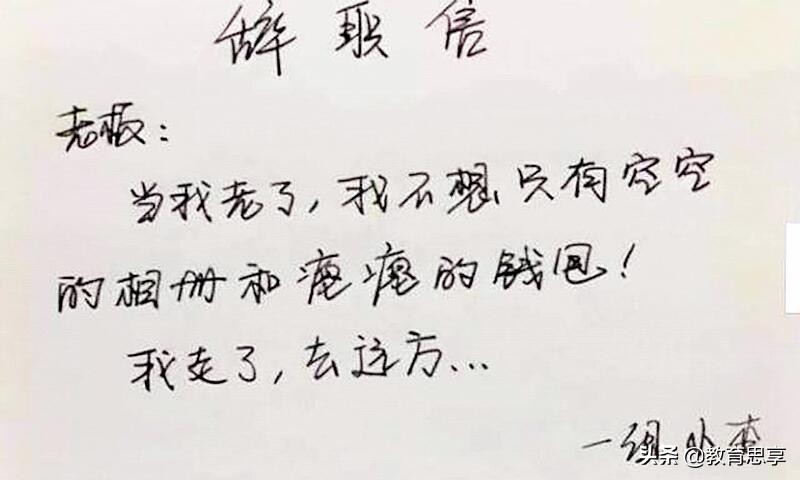 辞职信
老板：
当我老了，我不想只有空空
的相册和瘪瘪的钱包！
我走了，去远方...
一组小李
头条 @教育思享